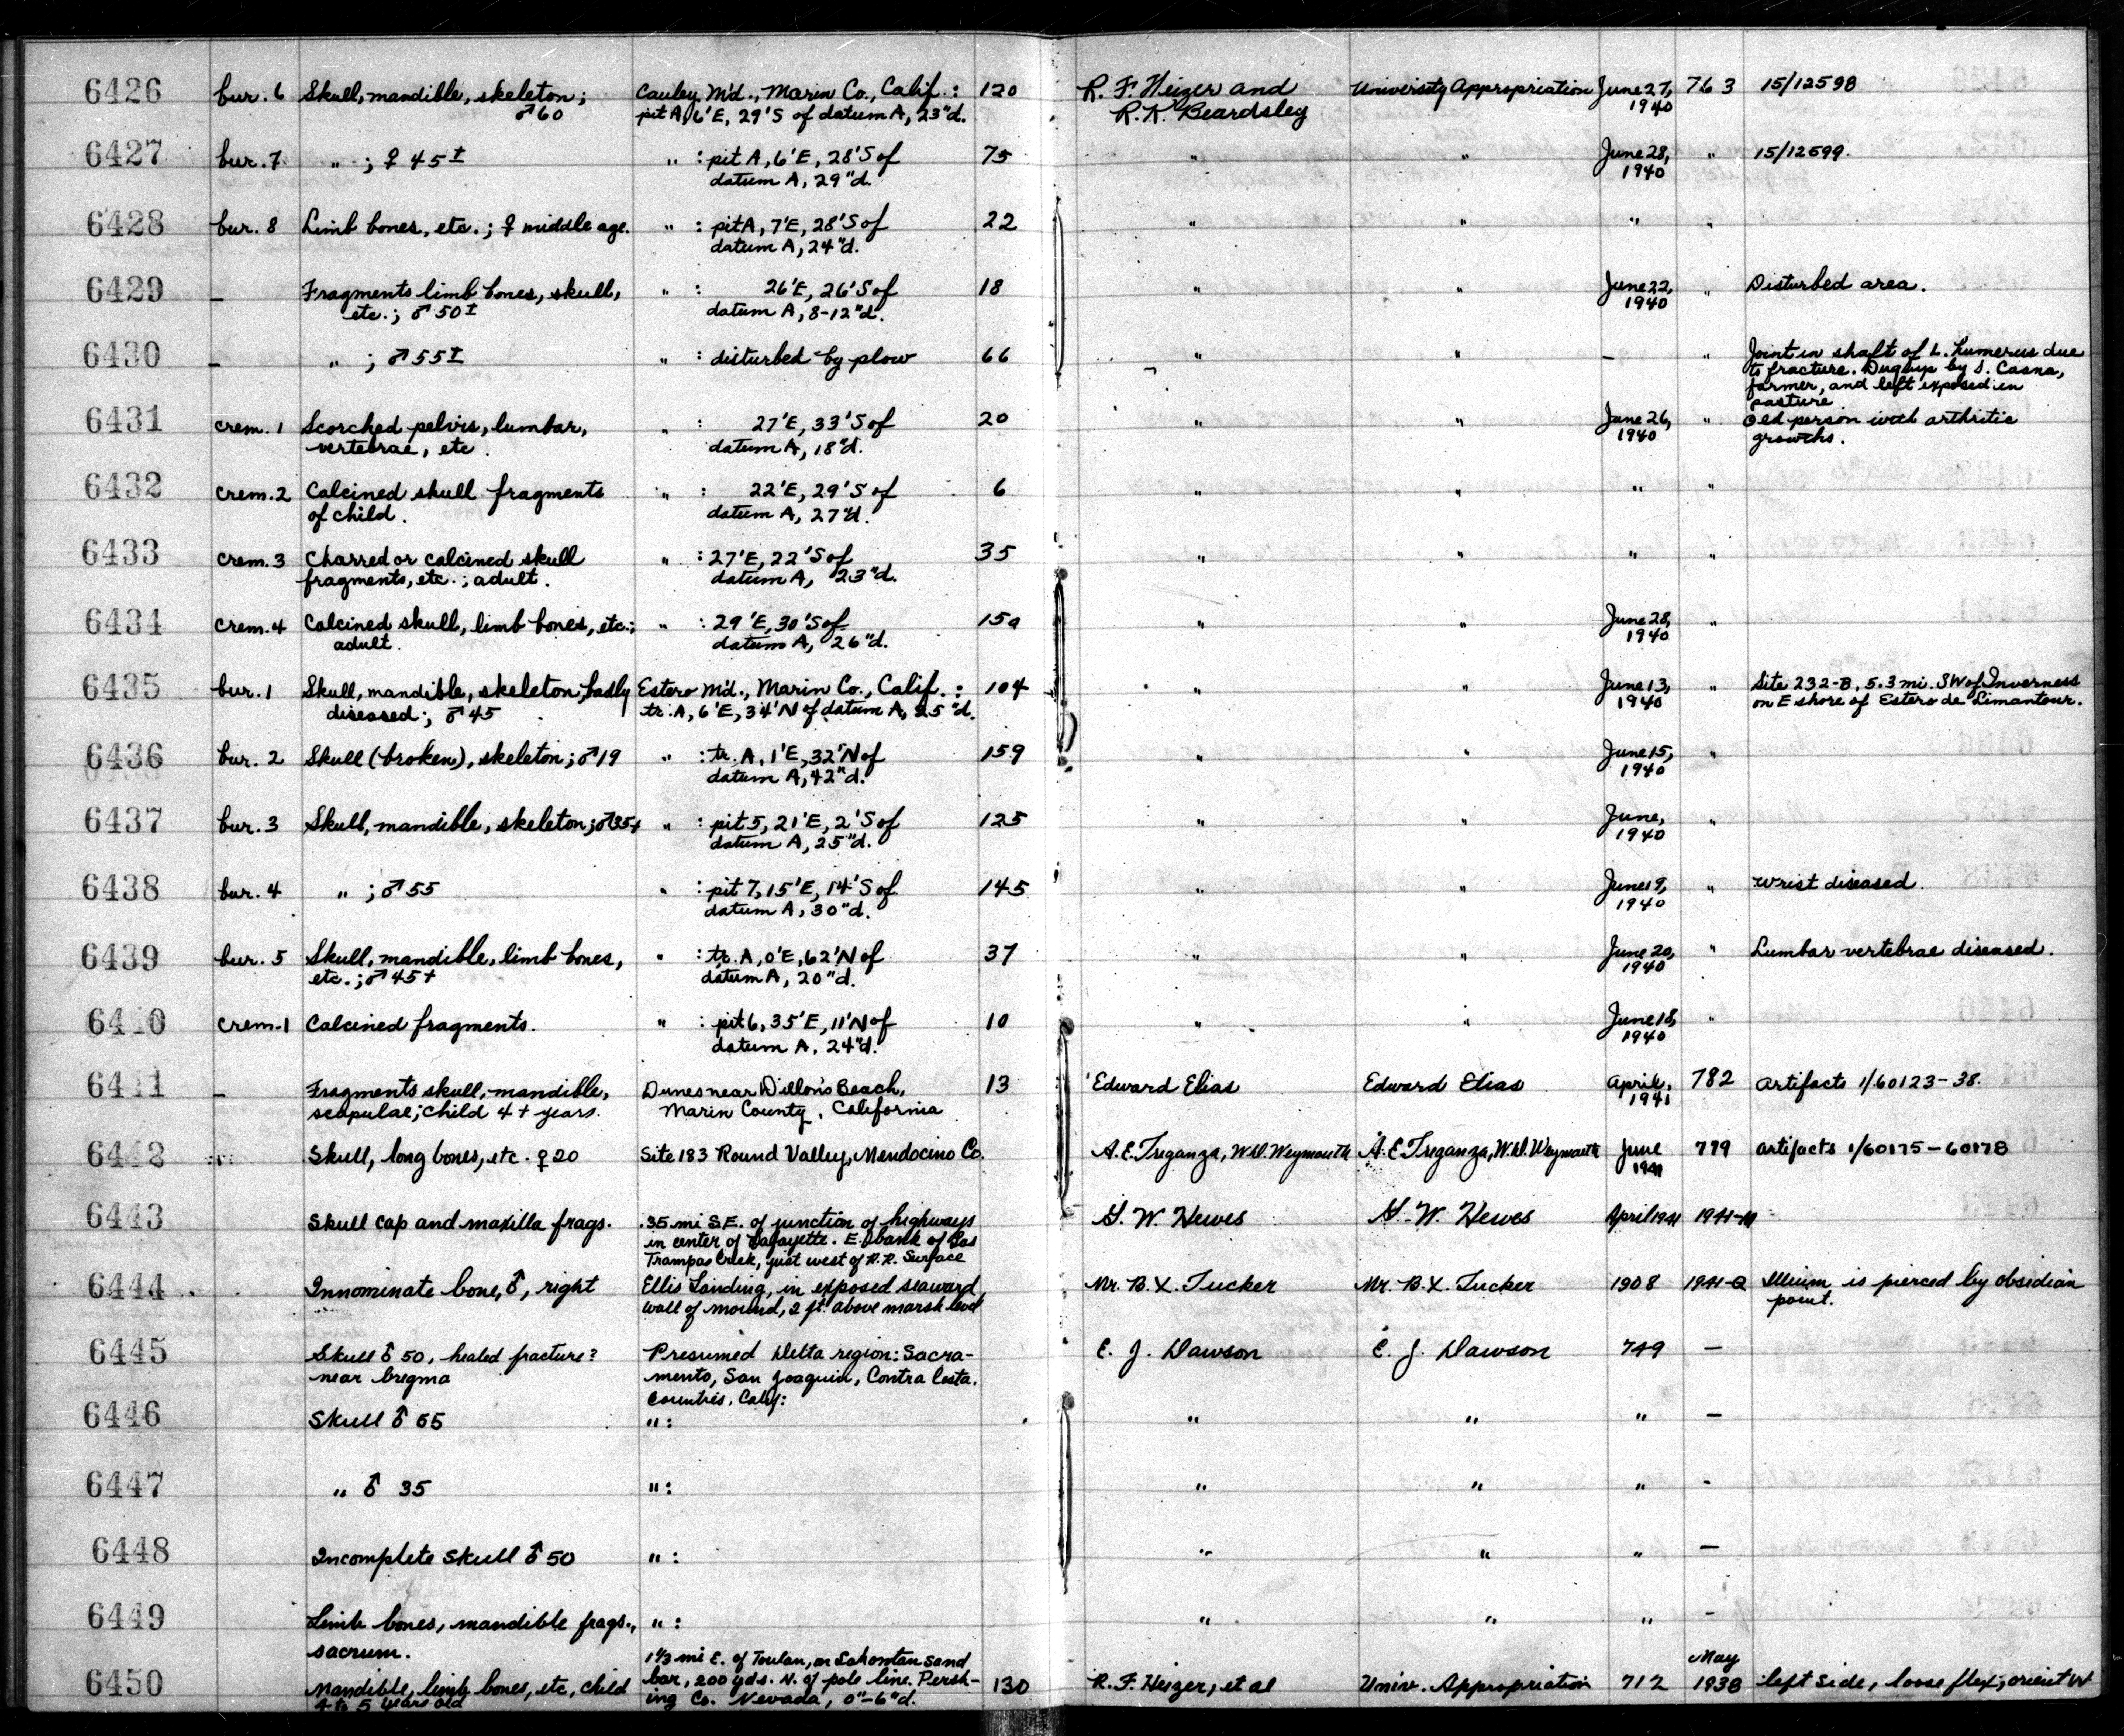 6426 bur. 6 Skull, mandible, skeleton; Cauley M'd., Marin Co., Calif.: 120 R. F. Heizer and University Appropriation June 27, 763 15/12598
♂60 pit A, 6'E, 29'S of datum A, 23"d. R. K. Beardsley 1940
6427 bur. 7 " ; ♀ 45± " : pit A, 6'E, 28'S of 75 " " June 28, " 15/12599.
datum A, 29"d. 1940
6428 bur. 8 Limb bones, etc.; ♀ middle age. " : pit A, 7'E, 28'S of 22 " " " "
datum A, 24"d.
6429 – Fragments limb bones, skull, " : 26'E, 26'S of 18 " " June 22, " Disturbed area.
etc.; ♂ 50± datum A, 8-12"d. 1940
6430 – " ; ♂ 55± " : disturbed by plow 66 " " – " Joint in shaft of L. humerus due
to fracture. Dug up by J. Casna,
farmer, and left exposed in
pasture
6431 crem. 1 Scorched pelvis, lumbar, " : 27'E, 33'S of 20 " " June 26, " Old person with arthritic
vertebrae, etc. datum A, 18"d. 1940 growths.
6432 crem. 2 Calcined skull fragments " : 22'E, 29'S of 6 " " " "
of child. datum A, 27"d.
6433 crem. 3 Charred or calcined skull " : 27'E, 22'S of 35 " " " "
fragments, etc.; adult. datum A, 23"d.
6434 crem. 4 Calcined skull, limb bones, etc.; " : 29'E, 30'S of 150 " " June 28, "
adult. datum A, 26"d. 1940
6435 bur. 1 Skull, mandible, skeleton, badly Estero M'd., Marin Co., Calif.: 104 " " June 13, " Site 232-B, 5.3 mi. SW of Inverness
diseased; ♂ 45 tr. A, 6'E, 34'N of datum A, 25"d. 1940 on E shore of Estero de Limantour.
6436 bur. 2 Skull (broken), skeleton; ♂19 " : tr. A, 1'E, 32'N of 159 " " June 15, "
datum A, 42"d. 1940
6437 bur. 3 Skull, mandible, skeleton; ♂35+ " : pit 5, 21'E, 2'S of 125 " " June, "
datum A, 25"d. 1940
6438 bur. 4 " ; ♂ 55 " : pit 7, 15'E, 14'S of 145 " " June 19, " Wrist diseased.
datum A, 30"d. 1940
6439 bur. 5 Skull, mandible, limb bones, " : tr. A, 0'E, 62'N of 37 " " June 20, " Lumbar vertebrae diseased.
etc.; ♂ 45+ datum A, 20"d. 1940
6440 crem-1 Calcined fragments. " : pit 6, 35'E, 11'N of 10 " " June 18, "
datum A, 24"d. 1940
6441 – Fragments skull, mandible, Dunes near Dillon's Beach, 13 Edward Elias Edward Elias April, 782 Artifacts 1/60123-38.
scapulae; child 4+ years. Marin County, California 1941
6442 Skull, long bones, etc. ♀ 20 Site 183 Round Valley, Mendocino Co. A. E. Treganza, W.D. Weymouth A. E. Treganza, W.D. Weymouth June 779 artifacts 1/60175-60178
1941
6443 Skull cap and maxilla frags. .35 mi S.E. of junction of highways G. W. Hewes G. W. Hewes April 1941 1941-M
in center of Lafayette. E. bank of Las
Trampas Creek, just west of R.R. Surface
6444 Innominate bone, ♂, right Ellis Landing, in exposed seaward Mr. B. X. Tucker Mr. B. X. Tucker 1908 1941-Q Illium is pierced by obsidian
wall of mound, 2 ft. above marsh level point.
6445 Skull ♂ 50, healed fracture? Presumed Delta region: Sacra- E. J. Dawson E. J. Dawson 749 –
near bregma mento, San Joaquin, Contra Costa.
Countries. Calif:
6446 Skull ♂ 55 " : " " " –
6447 " ♂ 35 " : " " " -
6448 Incomplete skull ♂ 50 " : " " " –
6449 Limb bones, mandible frags., " : " " " -
sacrum. 1 1/3 mi E. of Toulon, on Lahontan sand May
6450 Mandible, limb bones, etc, child bar, 200 yds. N. of pole line. Persh- 130 R. F. Heizer, et al Univ. Appropriation 712 1938 left side, loose flex, orient W
4 to 5 years old ing Co. Nevada, 0"-6"d.